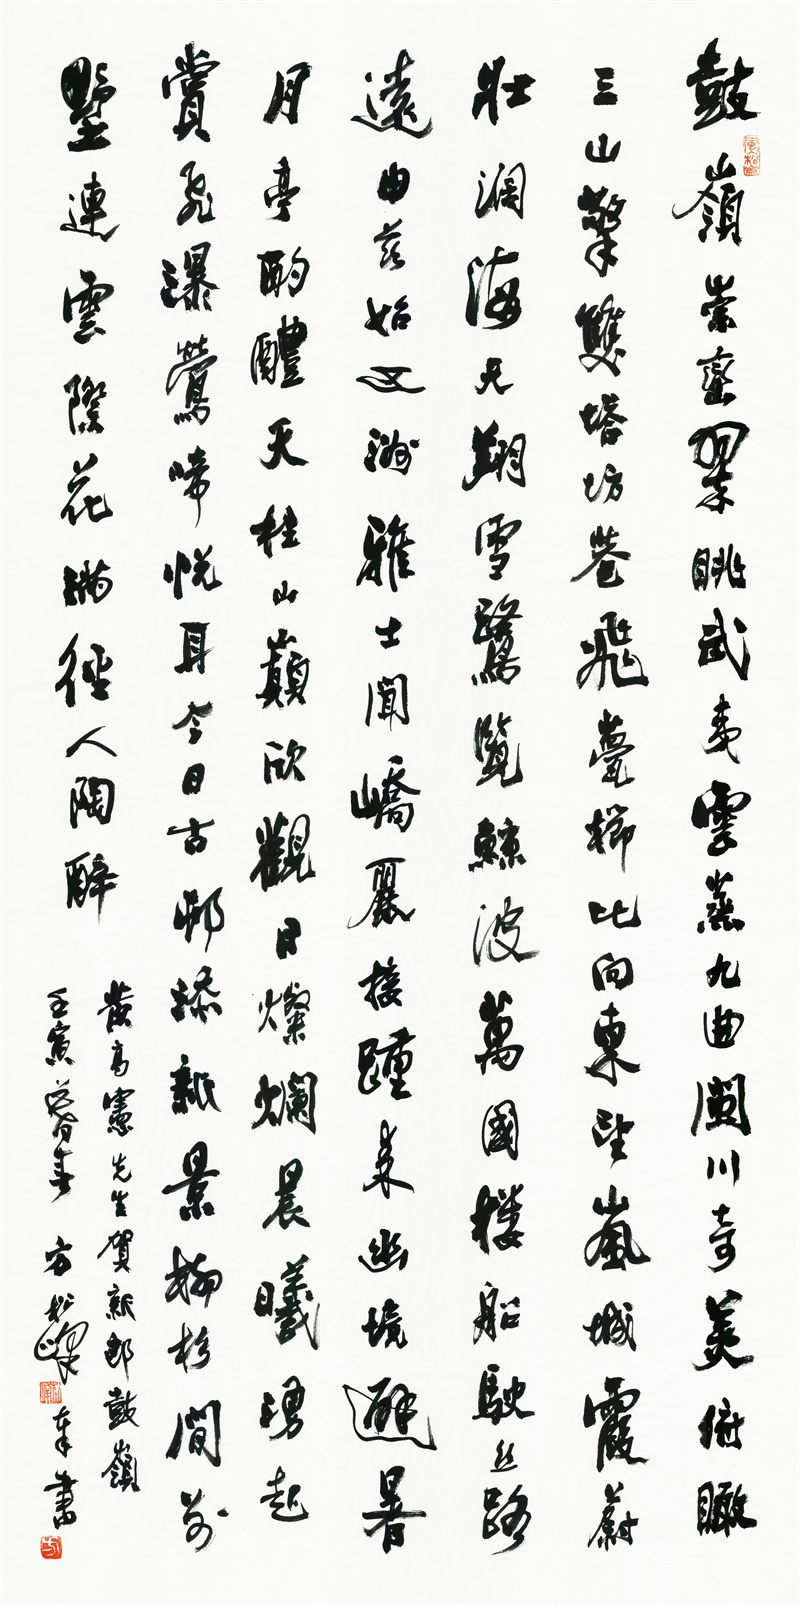 鼓嶺崇巒翠眺武夷雲蒸九曲閩川奇美俯瞰
三山擎雙塔坊巷飛甍櫛比向東望嵐城霞蔚
壯闊海天翔雪鷺覽鯨波萬國樓船駛絲路
遠由茲始五洲雅士聞嶠麗接踵來幽境避暑
月亭酌醴天柱山巔欣觀日燦爛晨曦湧起
賞飛瀑鶯啼悅耳今日古邨添新景柳杉間萬
壑連雲際花滿徑人陶醉
黃高憲先生賀新郎鼓嶺
壬寅暮春方松峰書